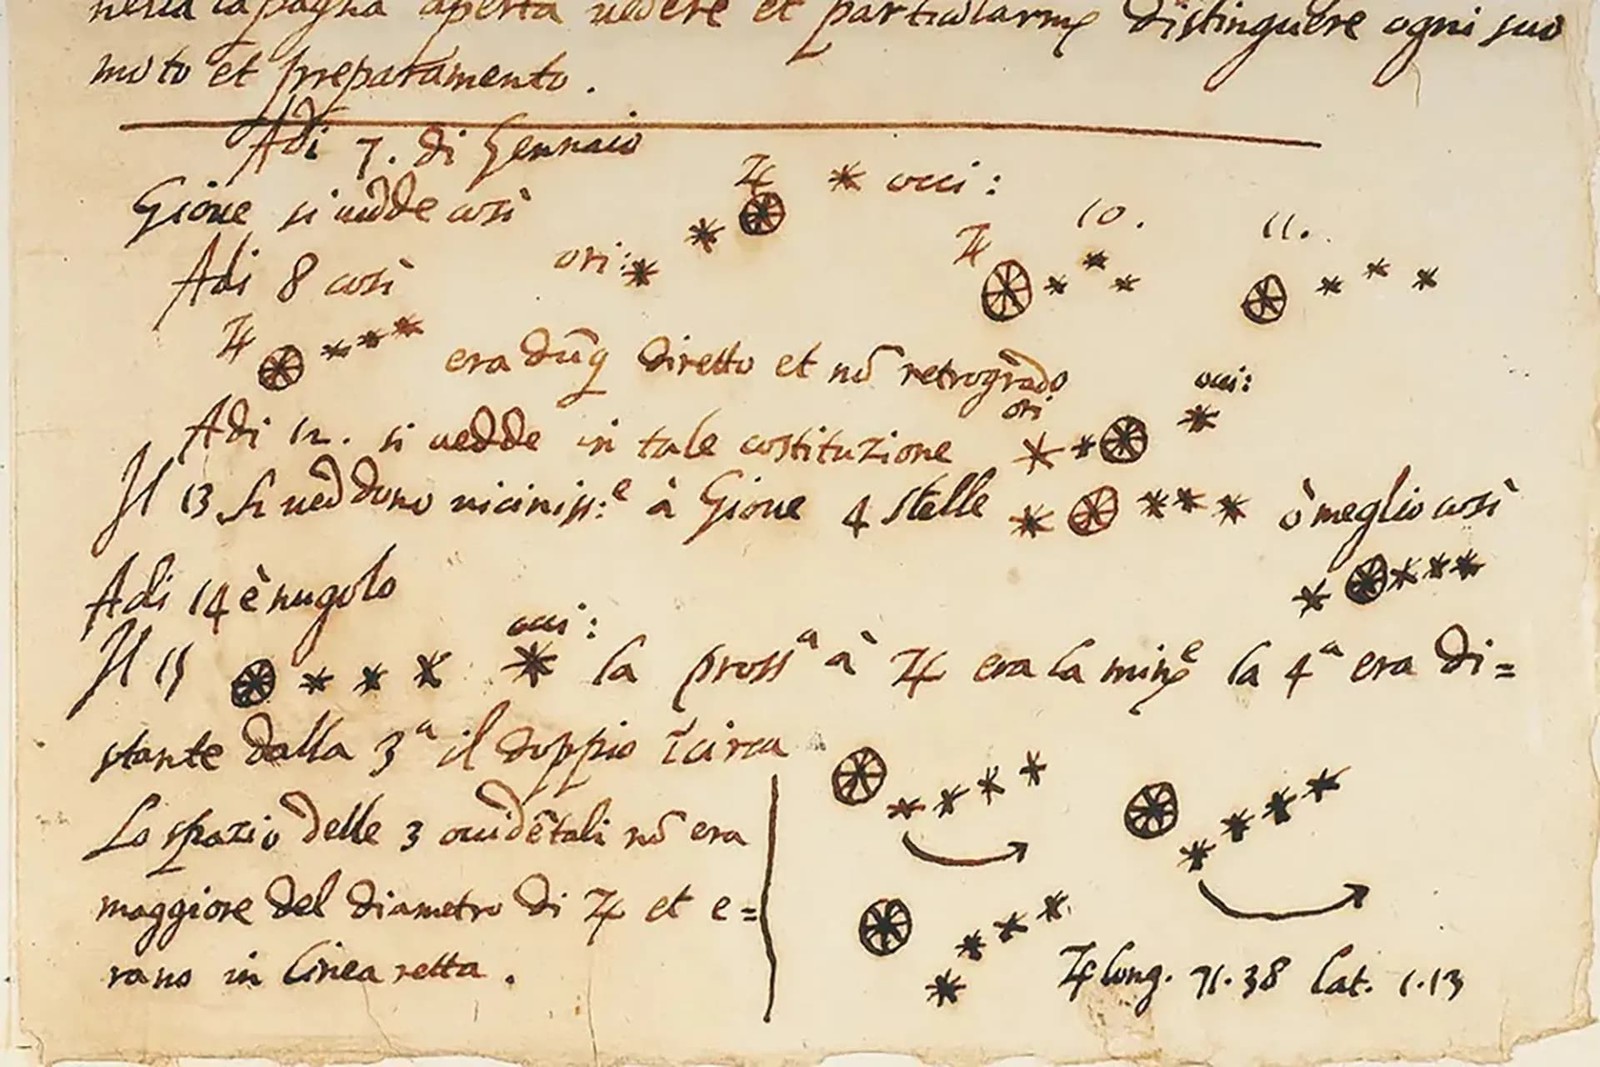 nella capagna aperta uedere et particularmẽ distinguere ogni suo
moto et preparamento.
Adi 7. di Gennaio
Gioue si uedde così
♃ occ:
ori:
Adi 8 così
♃ 10. 11.
♃ era dũq diretto et nõ retrogrado
Adi 12. si uedde in tale costituzione ori occi:
Il 13 si ueddono uiciniss:e à Gioue 4 stelle ò meglio così
Adi 14 è nugolo
Il 15 occi: la prossa à ♃ era la mine la 4a era di=
stante dalla 3a il doppio ĩcirca
Lo spazio delle 3 occidẽtali nõ era
maggiore del diametro di ♃ et e=
rano in linea retta.
♃ long. 71.38 lat. 1.13